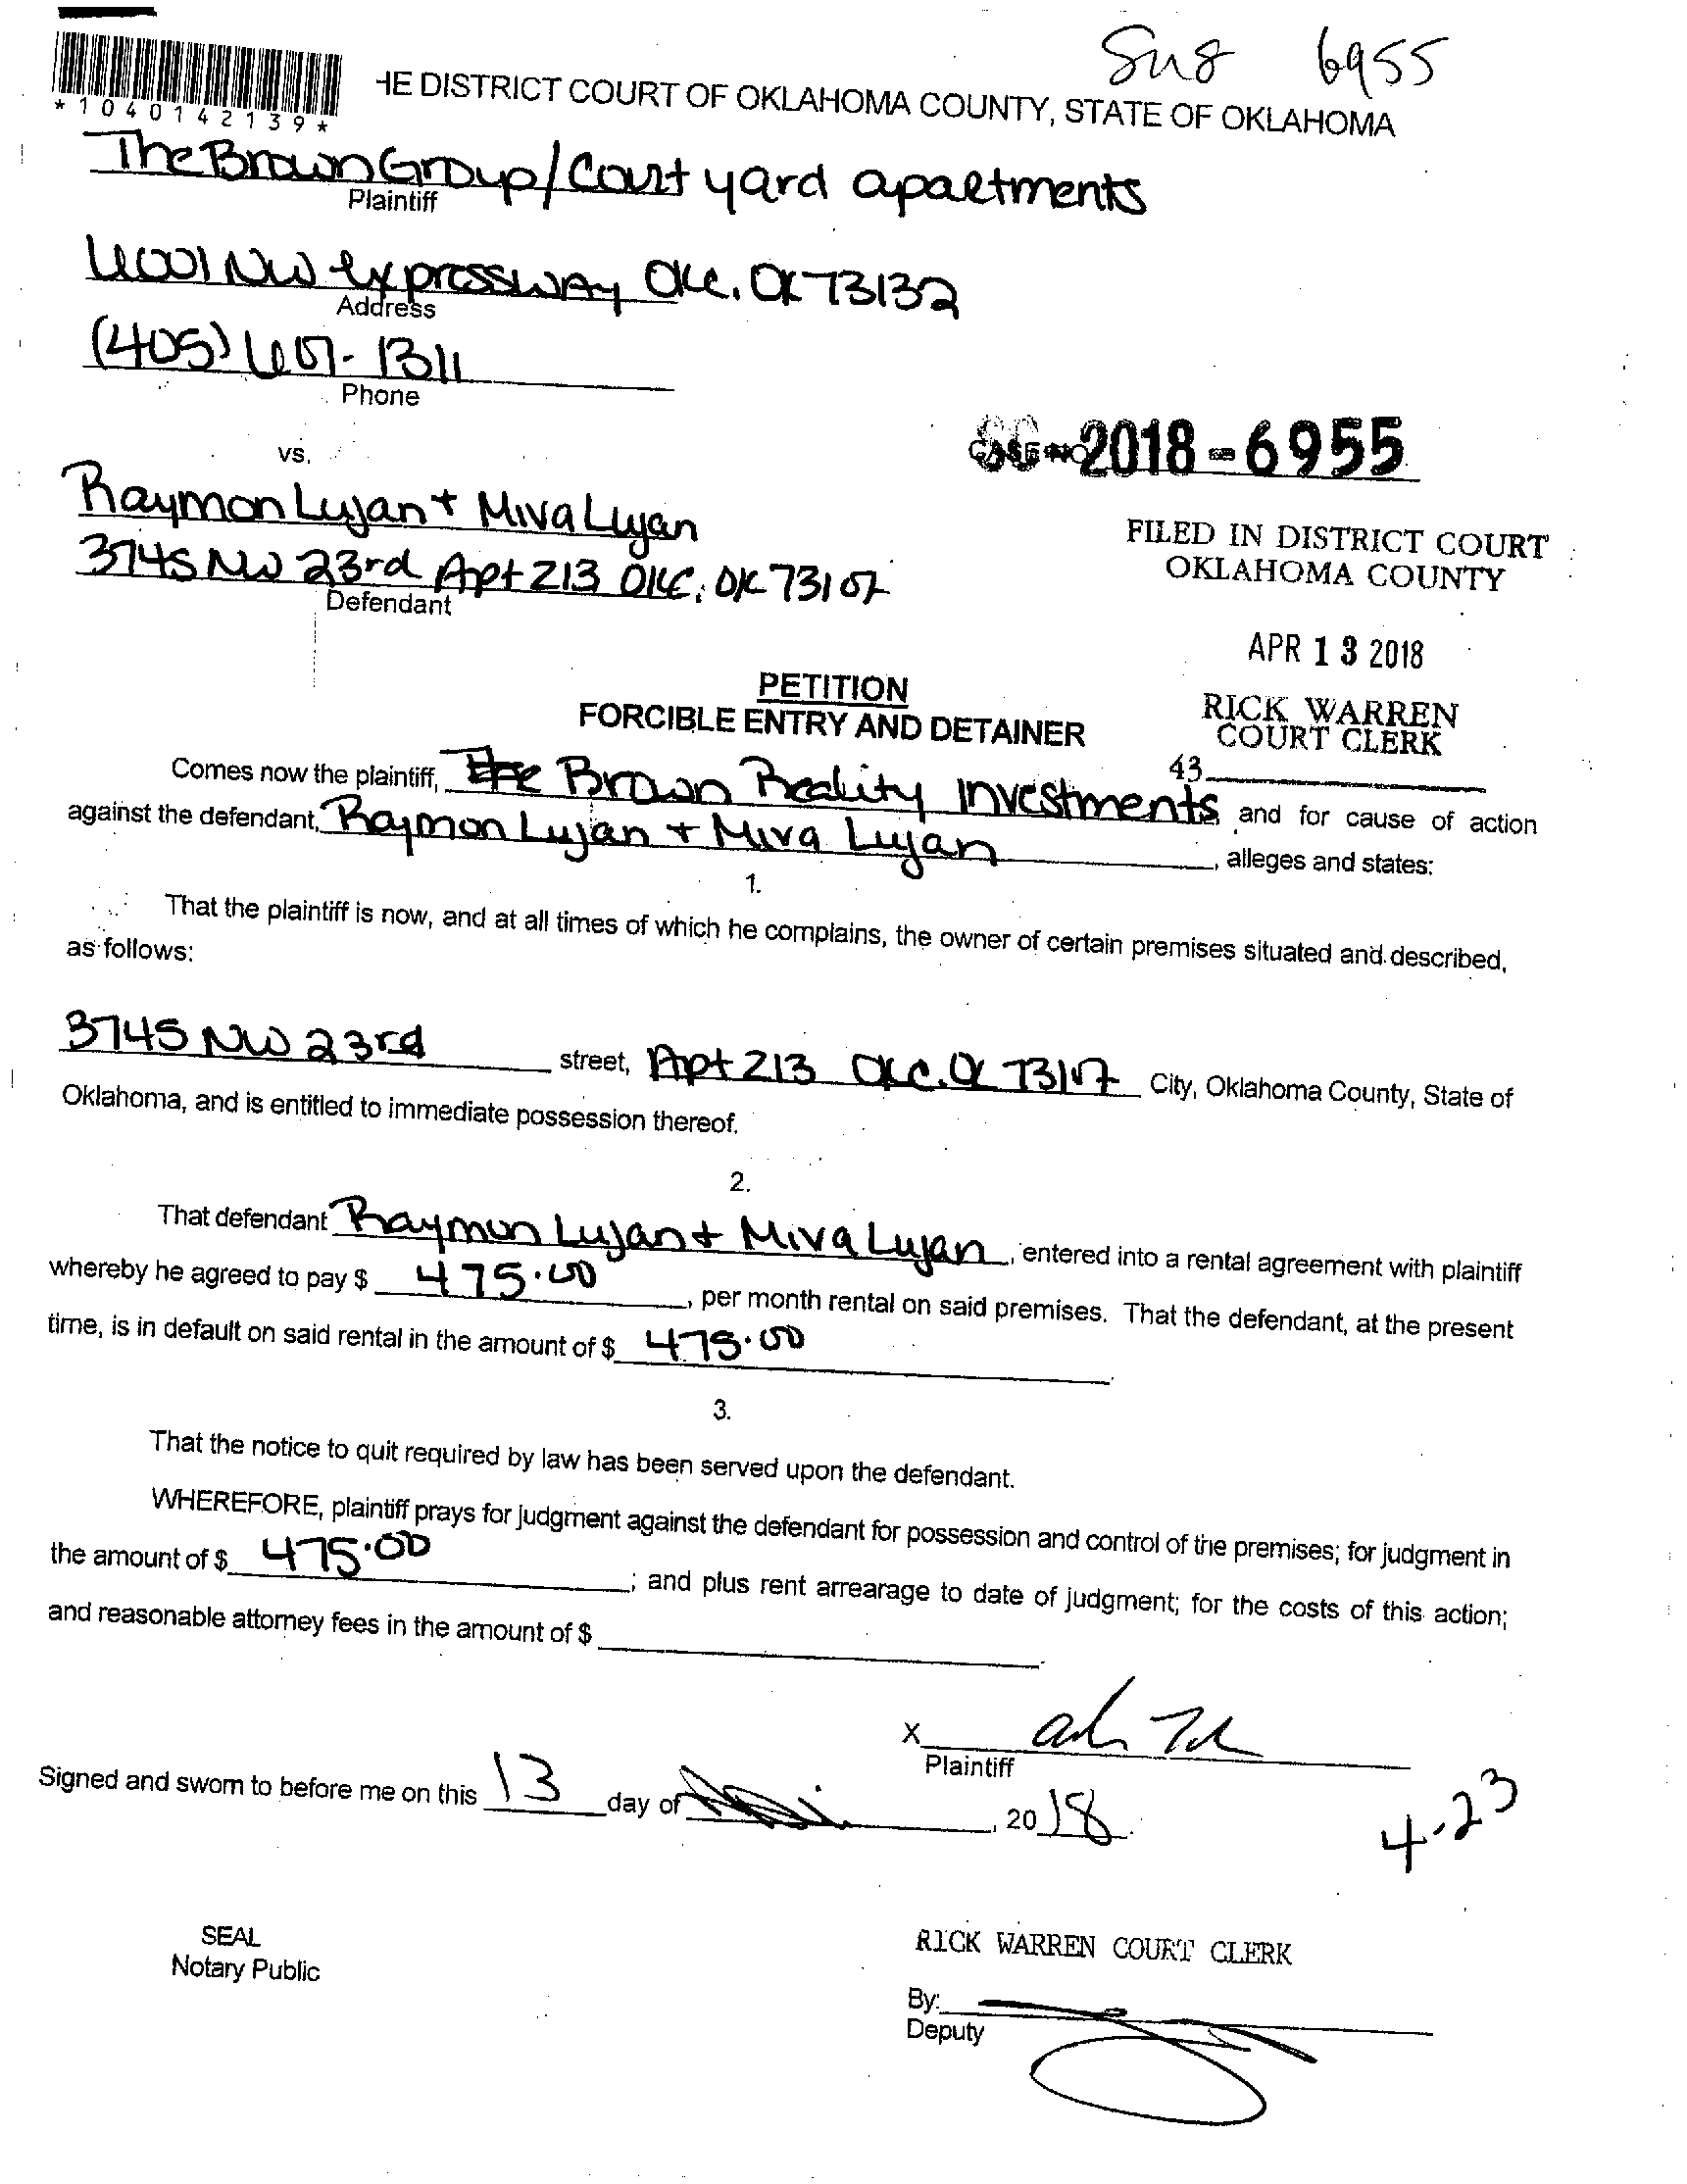 6955
*1040142139*
HE DISTRICT COURT OF OKLAHOMA COUNTY, STATE OF OKLAHOMA
The Brown Group/Court yard apartments
Plaintiff
6001 NW expressway OKC, OK 73132
Address
(405) 607-1311
Phone
vs.
2018-6955
Raymon Lujan + Miva Lujan
3745 NW 23rd Apt 213 OKC, OK 73107
Defendant
FILED IN DISTRICT COURT
OKLAHOMA COUNTY
APR 13 2018
RICK WARREN
COURT CLERK
43
PETITION
FORCIBLE ENTRY AND DETAINER
Comes now the plaintiff, Brown Reality Investments and for cause of action
against the defendant, Raymon Lujan + Miva Lujan, alleges and states:
1.
That the plaintiff is now, and at all times of which he complains, the owner of certain premises situated and described,
as follows:
3745 NW 23rd street, Apt 213 OKC, OK 73107 City, Oklahoma County, State of
Oklahoma, and is entitled to immediate possession thereof.
2.
That defendant Raymon Lujan + Miva Lujan, entered into a rental agreement with plaintiff
whereby he agreed to pay $ 475.00, per month rental on said premises. That the defendant, at the present
time, is in default on said rental in the amount of $ 475.00.
3.
That the notice to quit required by law has been served upon the defendant.
WHEREFORE, plaintiff prays for judgment against the defendant for possession and control of the premises; for judgment in
the amount of $ 475.00; and plus rent arrearage to date of judgment; for the costs of this action;
and reasonable attorney fees in the amount of $
X
Plaintiff
Signed and sworn to before me on this 13 day of , 2018.
4-23
SEAL
Notary Public
RICK WARREN COURT CLERK
By:
Deputy